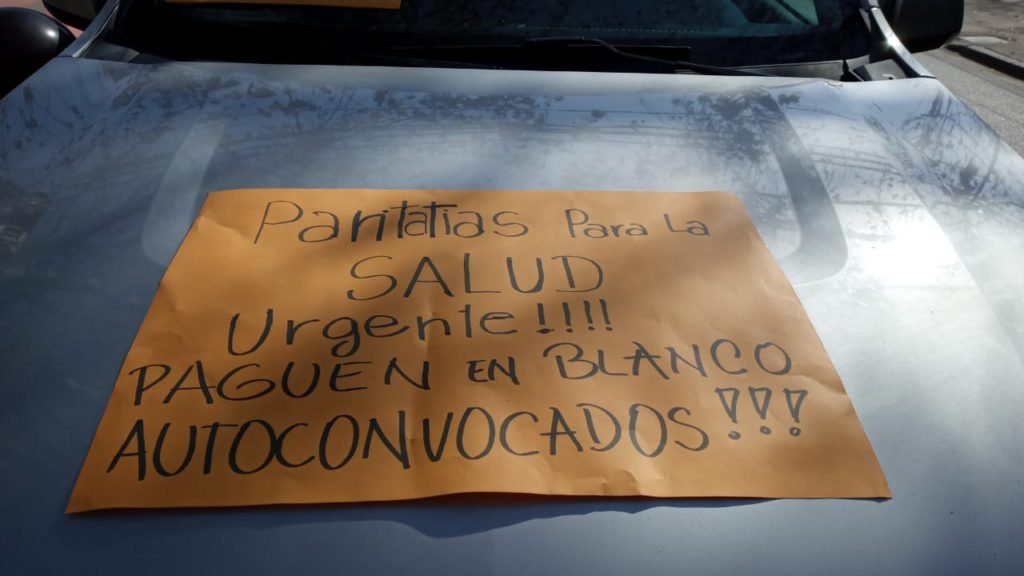 Paritatias Para La
SALUD
Urgente!!!!
PAGUEN EN BLANCO
AUTOCONVOCADOS!!!